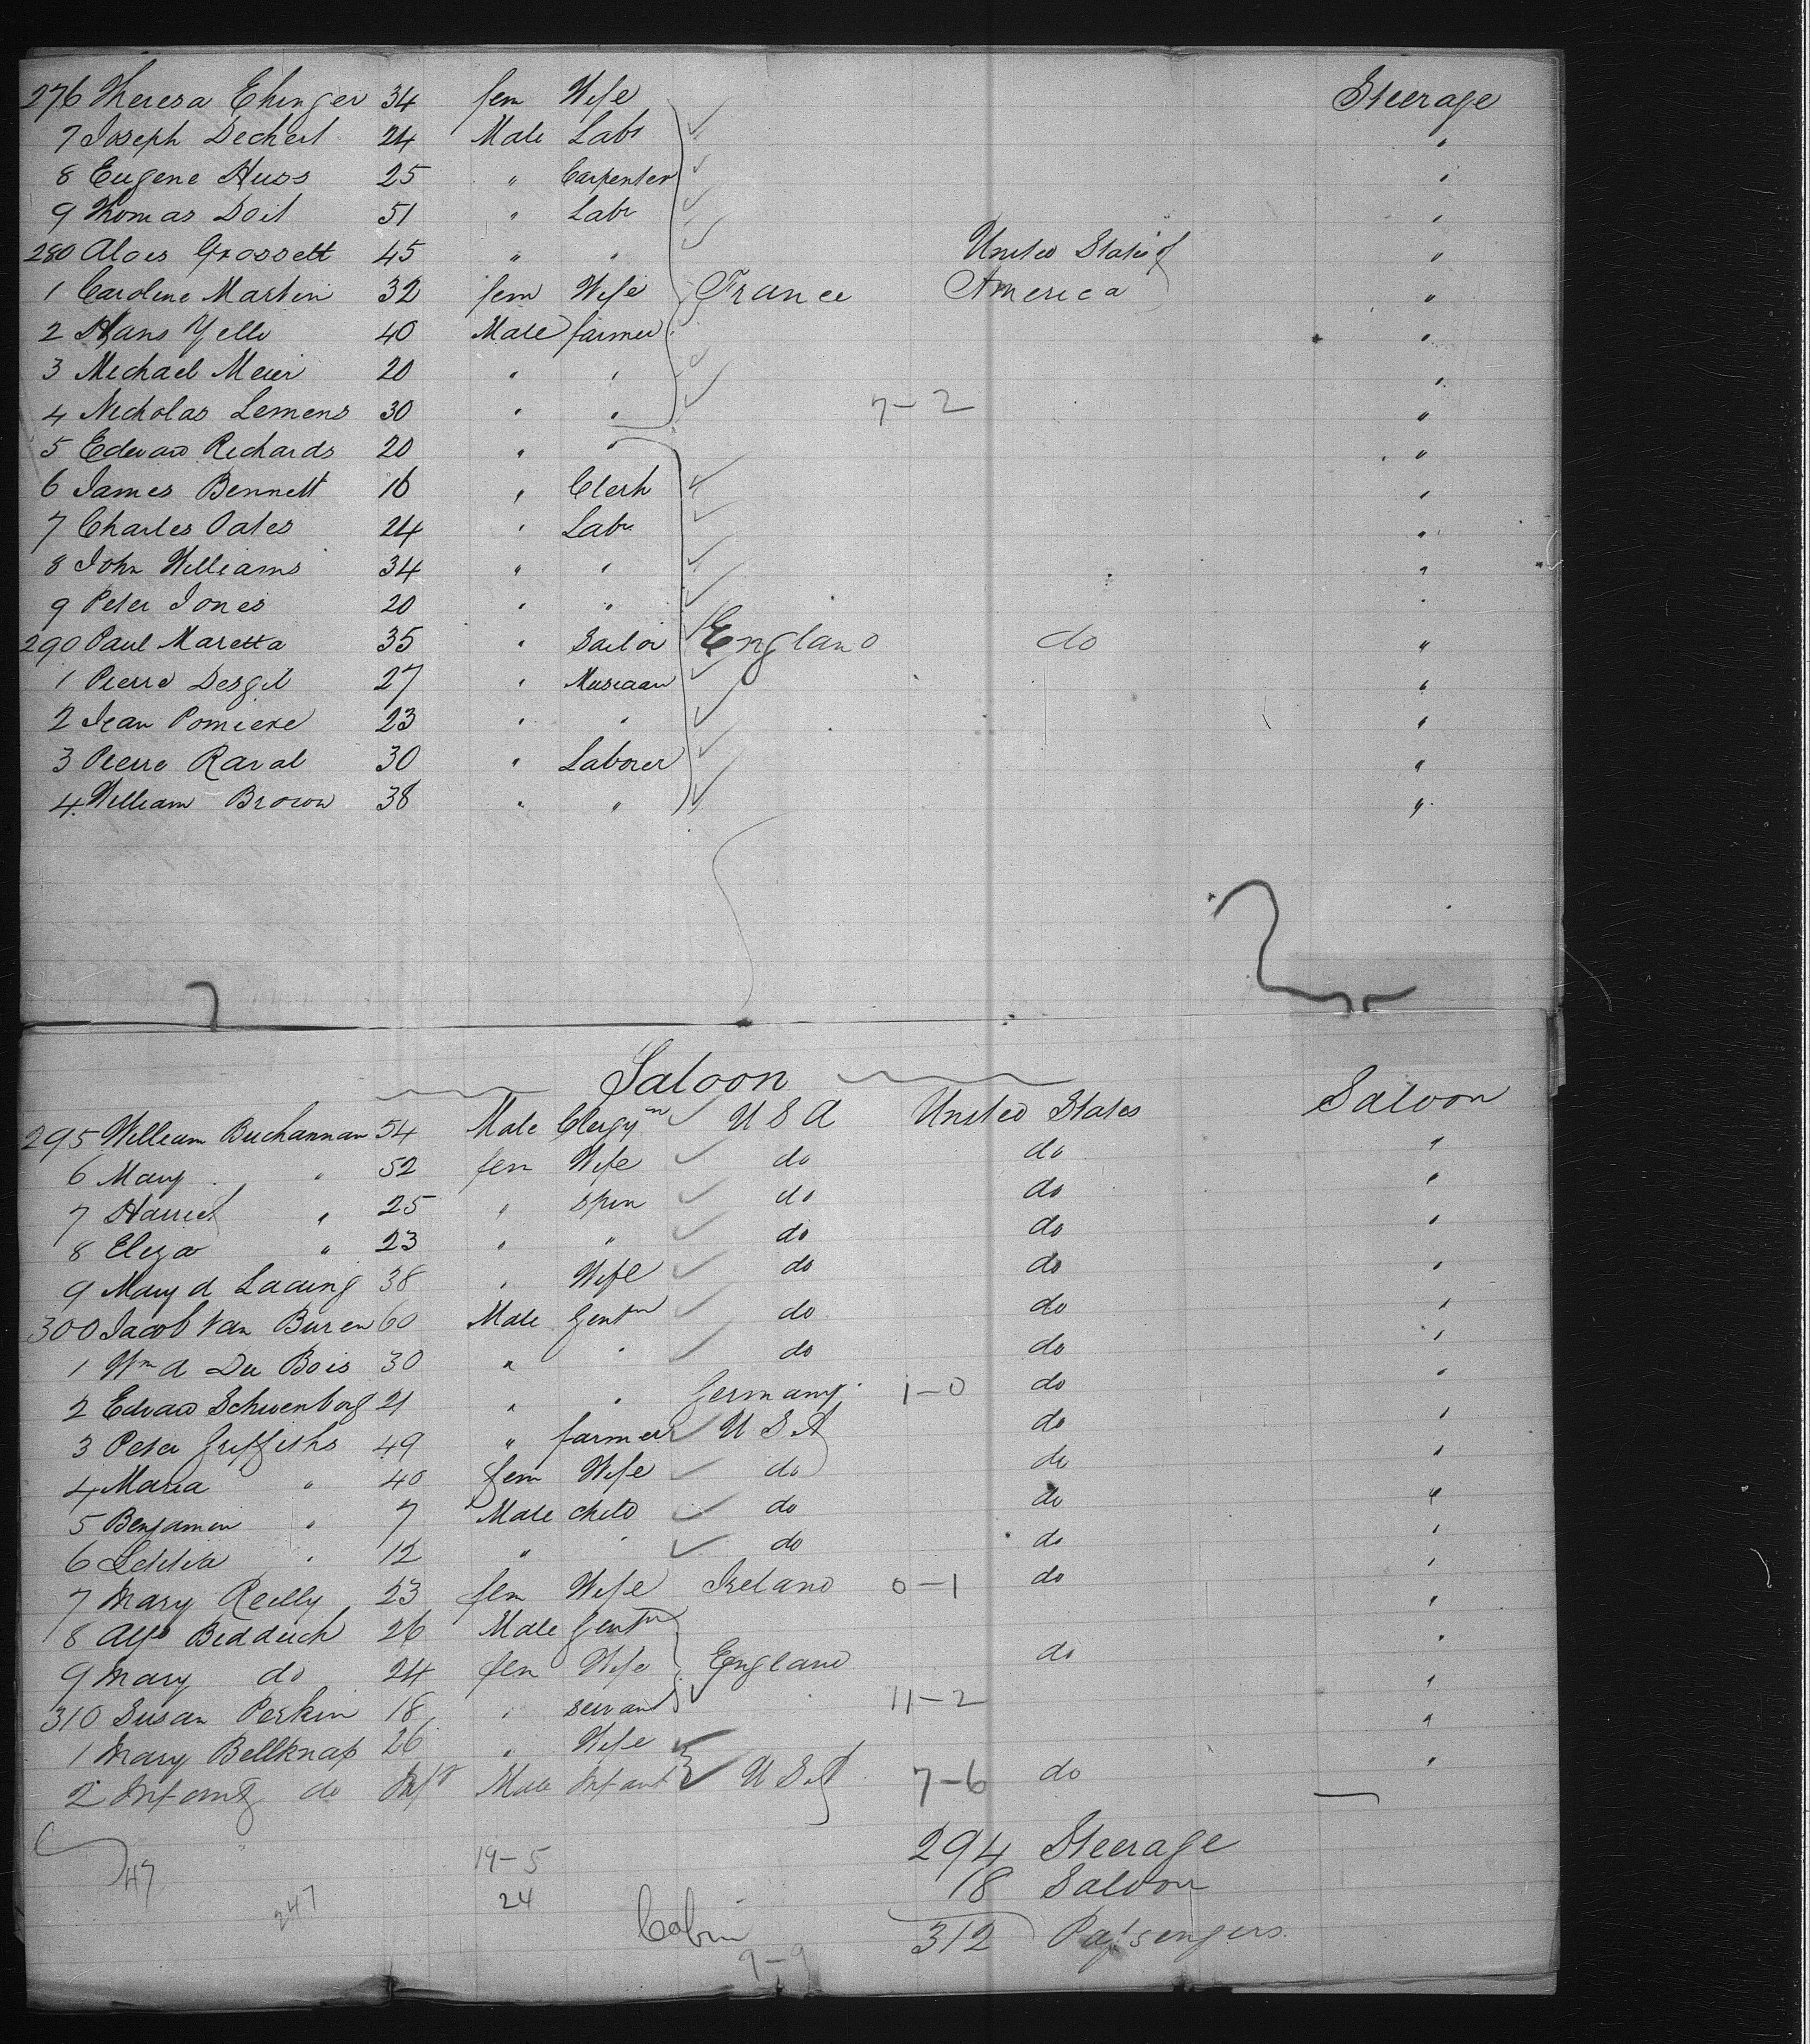 276 Theresa Ehinger 34 fem Wife Steerage
7 Joseph Dechert 24 Male Labr "
8 Eugene Huss 25 " Carpenter "
9 Thomas Doit 51 " Labr "
280 Alois Grossett 45 " " United States of "
1 Caroline Martin 32 fem Wife France America "
2 Hans Yelle 40 Male farmer "
3 Michael Meier 20 " " "
4 Nicholas Lemens 30 " " 7-2 "
5 Edward Richards 20 " " "
6 James Bennett 16 " Clerk "
7 Charles Oates 24 " Labr "
8 John Williams 34 " " "
9 Peter Jones 20 " " "
290 Paul Maretta 35 " Sailor England do "
1 Pierre Desgil 27 " Musician "
2 Jean Pomiere 23 " " "
3 Pierre Raval 30 " Laborer "
4 William Brown 38 " " "
Saloon
295 William Buchannan 54 Male Clergyn U S A United States Saloon
6 Mary " 52 fem Wife do do "
7 Harriet " 25 " spin do do "
8 Eliza " 23 " " do do "
9 Mary A Laaing 38 " Wife do do "
300 Jacob Van Buren 60 Male Gentn do do "
1 Wm A Du Bois 30 " " do do "
2 Edward Schwenborg 21 " " Germany 1-0 do "
3 Peter Griffiths 49 " farmer U S A do "
4 Maria " 40 fem Wife do do "
5 Benjamin " 7 Male child do do "
6 Letitia " 12 " " do do "
7 Mary Reilly 23 fem Wife Ireland 0-1 do "
8 Bedduch 26 Male Gentn "
9 Mary do 24 fem Wife England do "
310 Susan Perkin 18 " servant 11-2 "
1 Mary Bellknap 26 " Wife "
2 Infant do Inft Male Infant U S A 7-6 do "
294 Steerage
47 19-5 18 Saloon
247 24 Cabin 312 Passengers
9-9